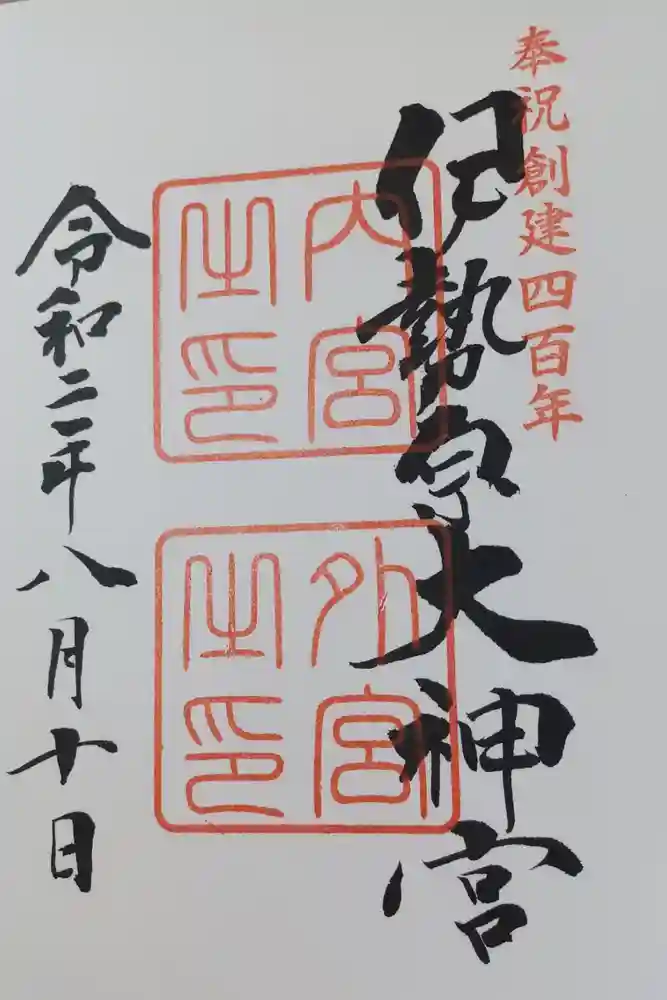 奉祝創建四百年
伊勢原大神宮
内宮
之印
外宮
之印
令和二年八月十日